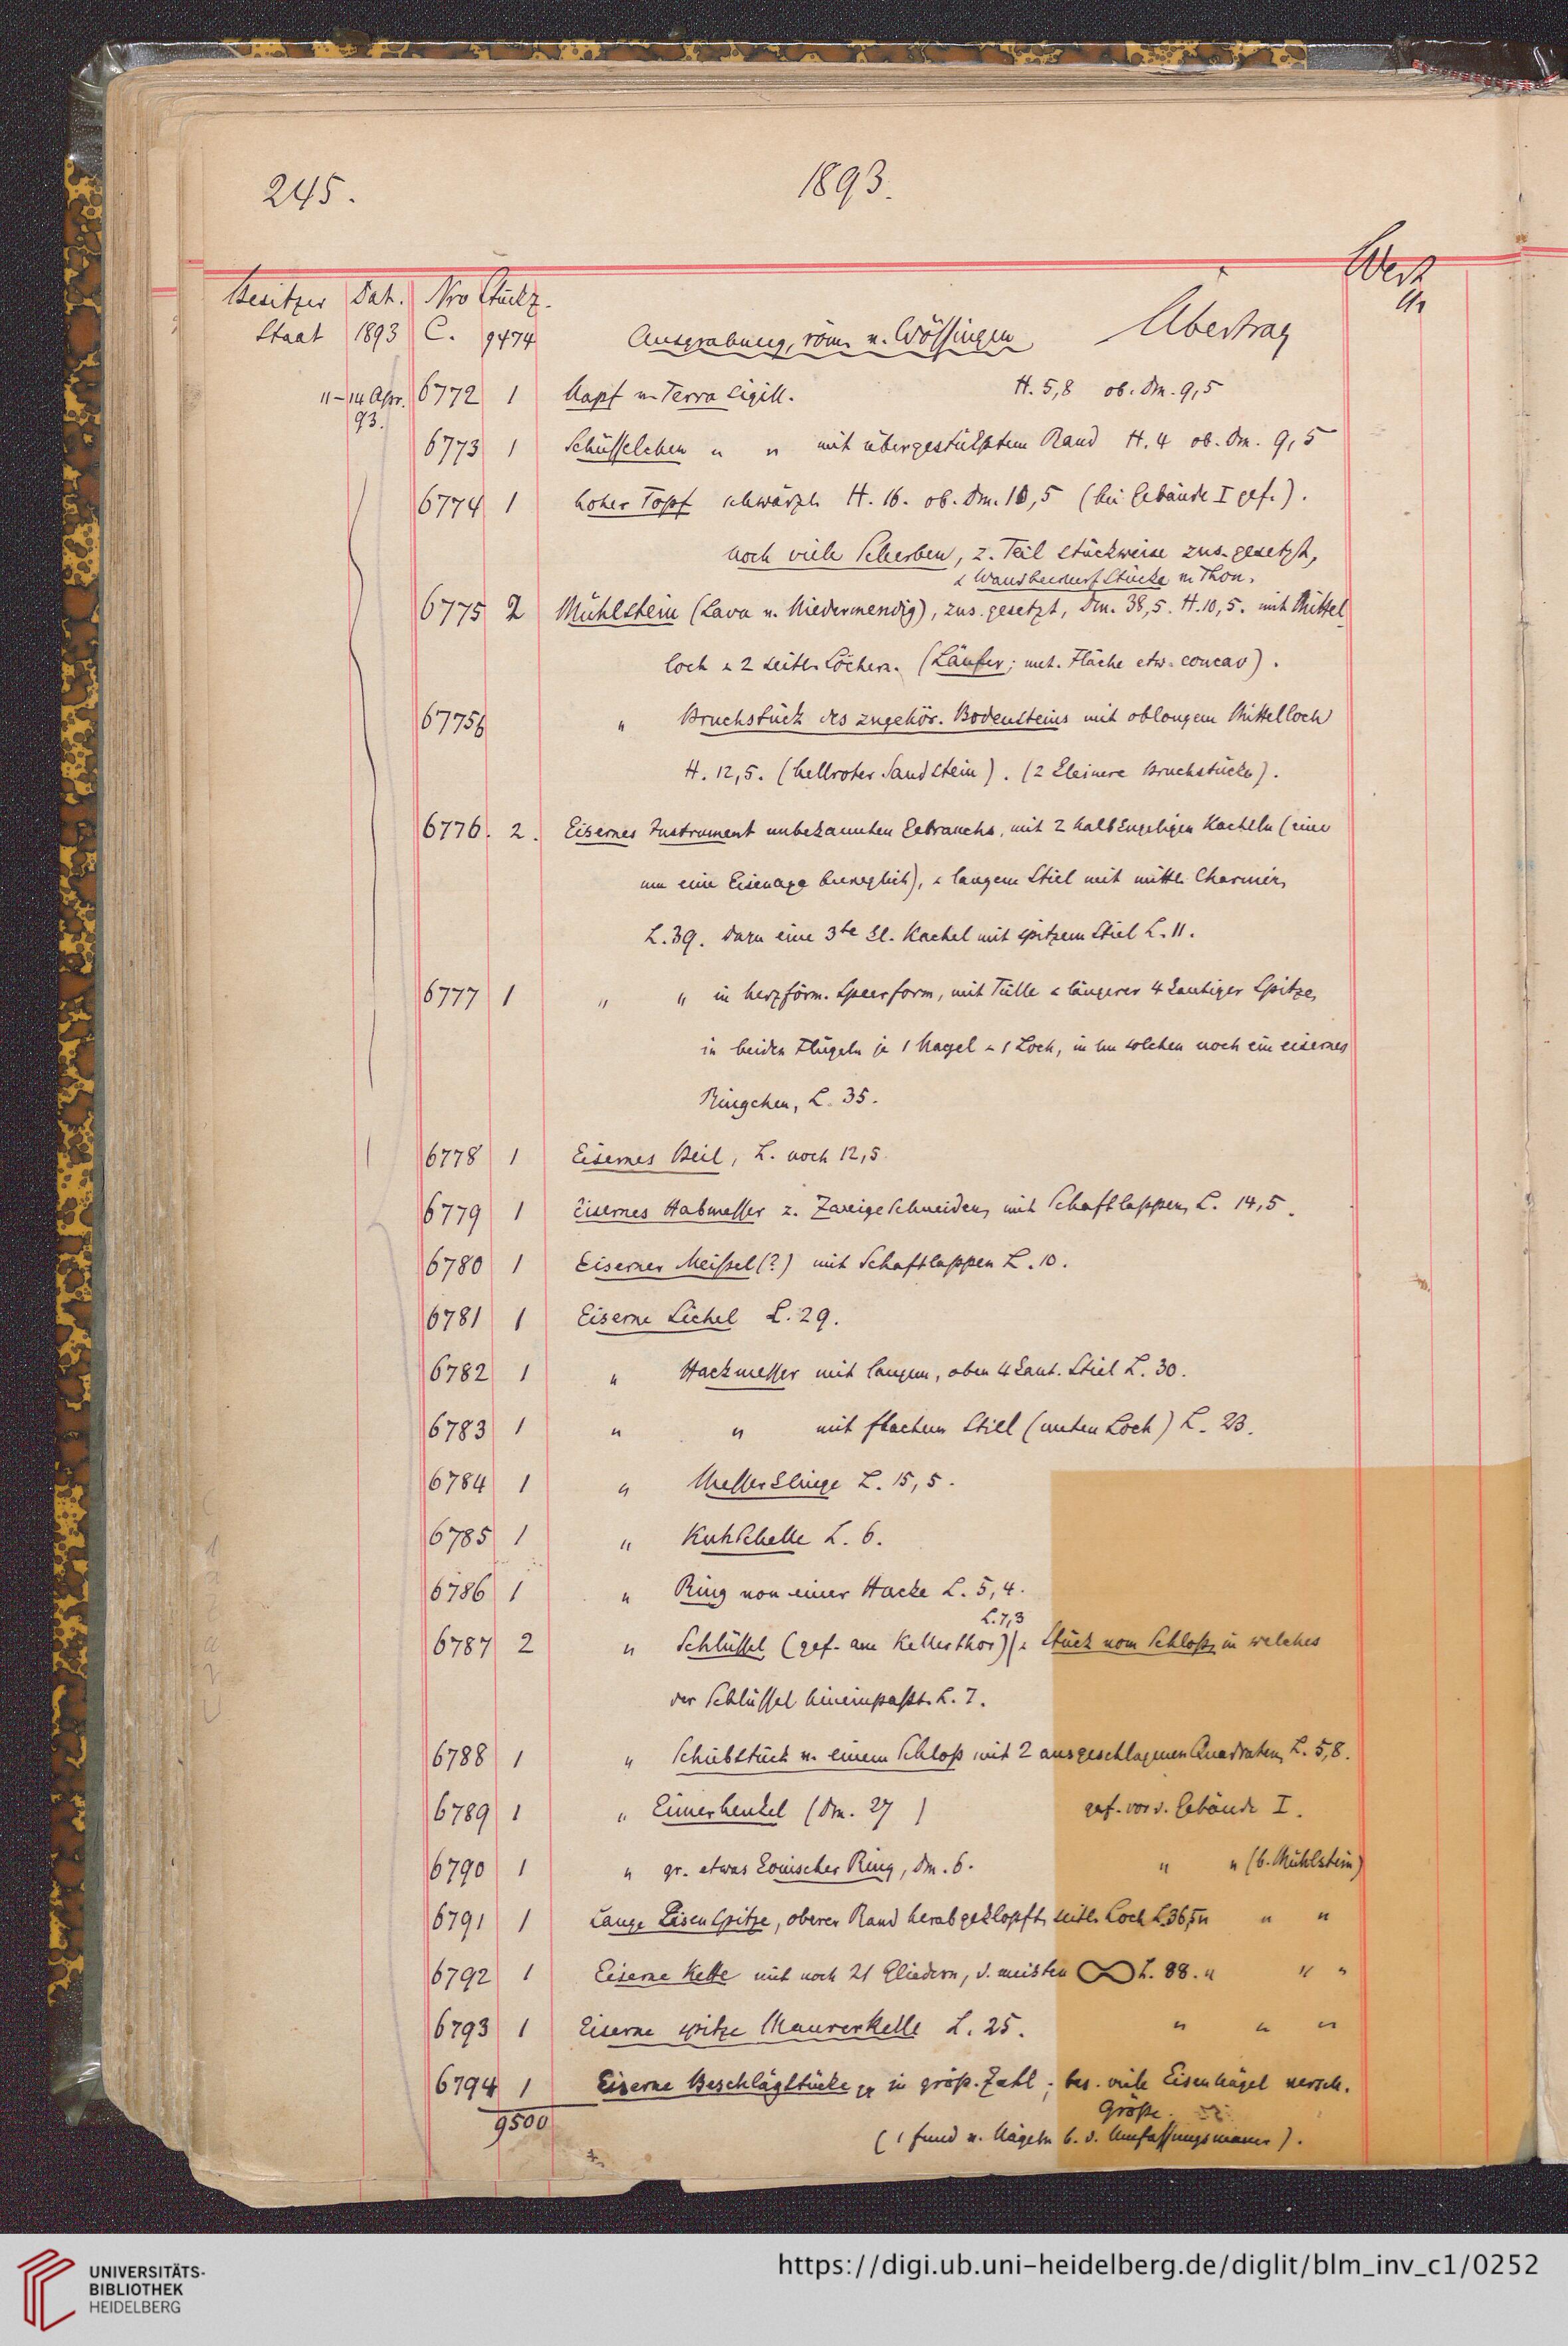 245. 1893.
Besitzer Dat. Nro Stückz. Wert
Staat 1893 C. 9474 Ausgrabung, röm. v. Wössingen Übertrag M
11–14 Apr. 6772 1 Napf v. Terra Sigill. H. 5,8 ob. Dm. 9,5
93.
6773 1 Schüsselchen " " mit übergestülptem Rand H. 4 ob. Dm. 9,5
6774 1 hoher Topf schwärzl. H. 16. ob. Dm. 10,5 (bei Gebäude I gef.).
noch viele Scherben, z. Teil stückweise zus. gesetzt,
& Wandbewurfstücke v. Thon.
6775 2 Mühlstein (Lava v. Niedermendig), zus. gesetzt, Dm. 38,5. H. 10,5. mit Mittel
loch & 2 seitl. Löchern. (Läufer; unt. Fläche etw. concav).
6775b " Bruchstück des zugehör. Bodensteins mit oblongem Mittelloch
H. 12,5. (hellroter Sandstein). (2 kleinere Bruchstücke).
6776. 2. Eisernes Instrument unbekannten Gebrauchs, mit 2 halbkugeligen Kacheln (eine
um eine Eisenaxe beweglich), & langem Stiel mit mittl. Charnier,
L. 39. Dazu eine 3te kl. Kachel mit spitzem Stiel L. 11.
6777 1 " " in herzförm. Speerform, mit Tülle & längerer 4kantiger Spitze,
in beiden Flügeln je 1 Nagel & 1 Loch, in einem solchen noch ein eisernes
Ringchen, L. 35.
6778 1 Eisernes Beil, L. noch 12,5.
6779 1 Eisernes Habmesser z. Zweigeschneiden, mit Schaftlappen, L. 14,5.
6780 1 Eiserner Meißel (?) mit Schaftlappen L. 10.
6781 1 Eiserne Sichel L. 29.
6782 1 " Hackmesser mit langem, oben 4kant. Stiel L. 30.
6783 1 " " mit flachem Stiel (unten Loch) L. 23.
6784 1 " Messerklinge L. 15,5.
6785 1 " Kuhschelle L. 6.
6786 1 " Ring von einer Hacke L. 5,4.
L. 7,3
6787 2 " Schlüssel (gef. am Kellerthor) & Stück vom Schloß, in welches
der Schlüssel hineinpaßt. L. 7.
6788 1 " Schiebstück v. einem Schloß mit 2 ausgeschlagenen Quadraten, L. 5,8.
6789 1 " Eimerhenkel (Dm. 27 ) gef. vor d. Gebäude I.
6790 1 " gr. etwas konischer Ring, Dm. 6. " " (b. Mühlstein)
6791 1 Lange Eisenspitze, oberer Rand herabgeklopft, seitl. Loch L. 36,5 " " "
6792 1 Eiserne Kette mit noch 21 Gliedern, d. meisten ∞ L. 88. " " "
6793 1 Eiserne spitze Maurerkelle L. 25. " " "
6794 1 Eiserne Beschlägstücke in größ. Zahl; bes. viele Eisennägel versch.
Größe.
9500 (1 fund v. Nägeln b. d. Umfassungsmauer).
UNIVERSITÄTS-
BIBLIOTHEK
HEIDELBERG
https://digi.ub.uni-heidelberg.de/diglit/blm_inv_c1/0252